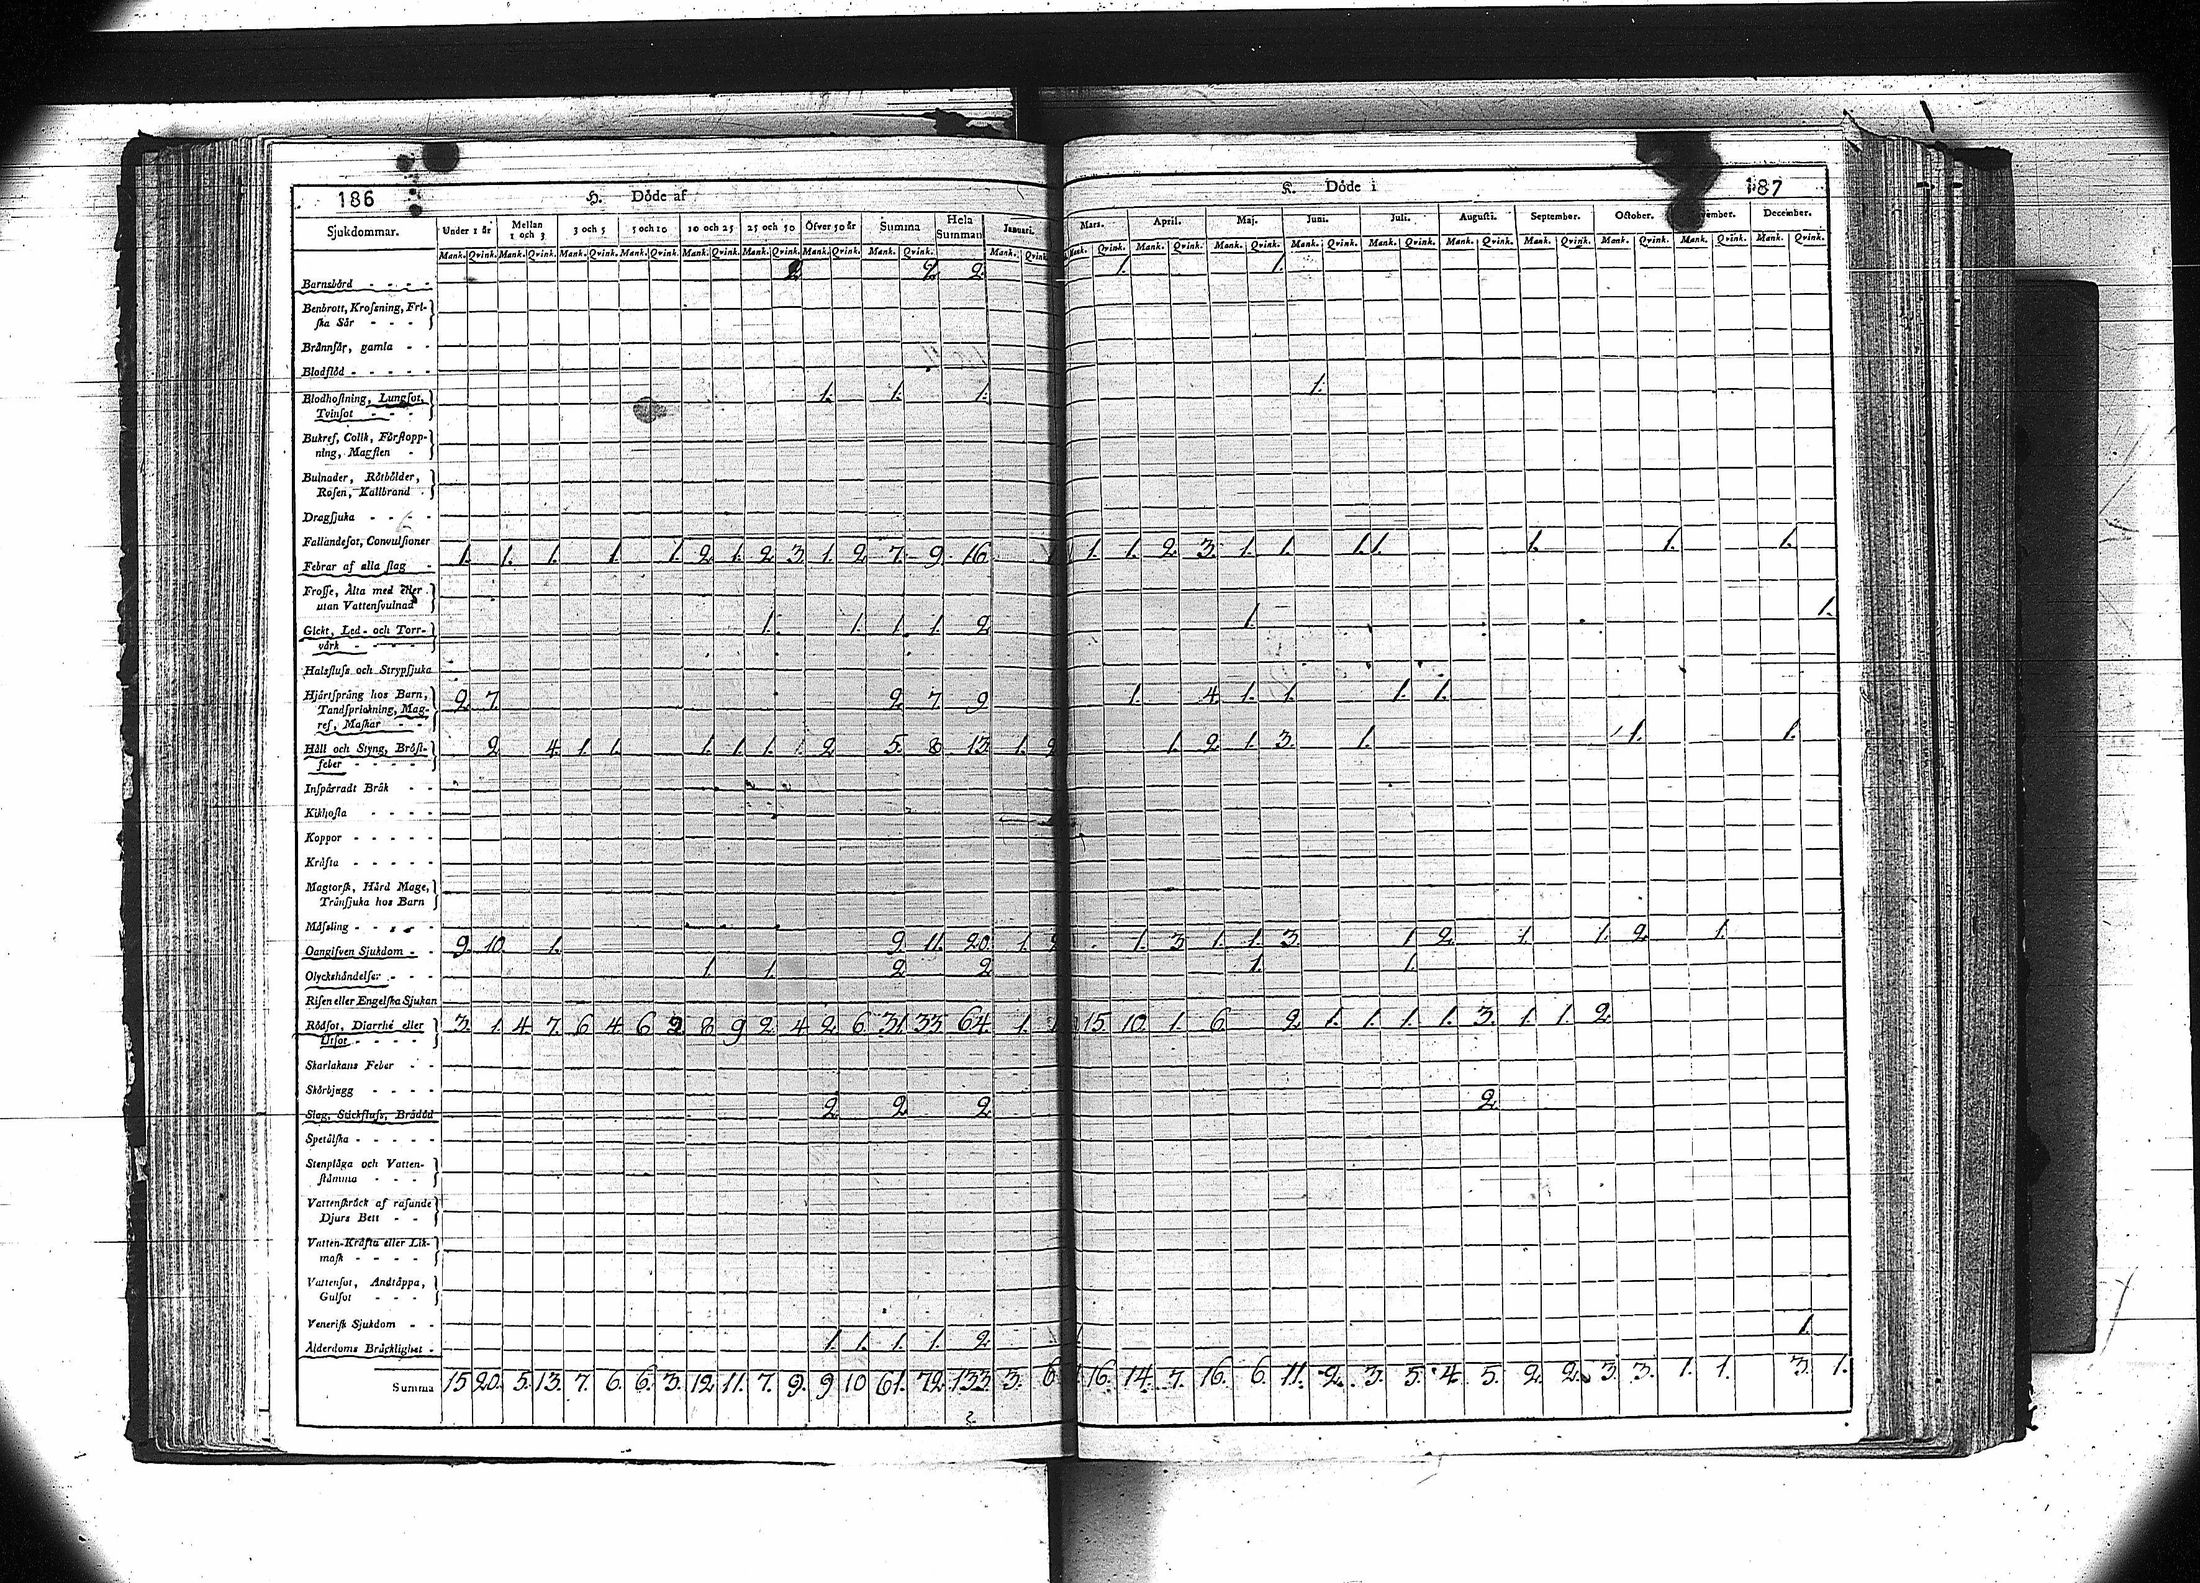 186
H. Döde af
K. Döde i
187
Sjukdommar.
Under 1 år
Mellan 1 och 3
3 och 5
5 och 10
10 och 25
25 och 50
Öfver 50 år
Summa
Hela Summan
Januari.
Mars.
April.
Maj.
Juni.
Juli.
Augusti.
September.
October.
December.
Mank. Qvink. Mank. Qvink. Mank. Qvink. Mank. Qvink. Mank. Qvink. Mank. Qvink. Mank. Qvink. Mank. Qvink. Mank. Qvink. Mank. Qvink. Mank. Qvink. Mank. Qvink. Mank. Qvink. Mank. Qvink. Mank. Qvink. Mank. Qvink. Mank. Qvink. Mank. Qvink. Mank. Qvink.
Barnsbörd - - - - 2. 2. 2. 1. 1.
Benbrott, Krossning, Fri-
ska Sår - - -
Brännsår, gamla - -
Blodflöd - - - - -
Blodhostning, Lungsot, 1. 1. 1. 1.
Tvinsot - - -
Bukref, Colik, Förstopp-
ning, Magsten -
Bulnader, Rötbölder,
Rosen, Kallbrand
Dragsjuka - - - -
Fallandesot, Convulsioner
Febrar af alla slag - 1. 1. 1. 1. 1. 2. 1. 2. 3. 1. 2. 7. 9. 16. 1. 1. 2. 3. 1. 1. 1. 1. 1. 1. 1.
Frosse, Älta med eller
utan Vattensvulnad 1.
Gickt, Led- och Torr- 1. 1. 1. 1. 2 1.
värk - - - -
Halsfluss och Strypsjuka
Hjärtsprång hos Barn, 2. 7. 2. 7. 9 1. 4. 1. 1. 1. 1.
Tandsprickning, Mag-
ref, Maskar - -
Håll och Styng, Bröst- 2. 4. 1. 1. 1. 1. 1. 1 2. 5. 8. 13. 1. 2 1. 2. 1. 3. 1. 1. 1.
feber - - - -
Inspärradt Bråk - -
Kikhosta - - - -
Koppor - - - - -
Kräfta - - - - -
Magtorsk, Hård Mage,
Tränsjuka hos Barn
Mässling - - - - -
Oangifven Sjukdom - - 9. 10. 1. 9. 11. 20. 1. 2 1. 3 1. 1. 3. 1. 2. 1. 1. 2. 1.
Olyckshändelser - - - 1. 1. 2. 2. 1. 1.
Risen eller Engelska Sjukan
Rödsot, Diarrhé eller 3. 1. 4. 7. 6. 4. 6. 2. 8. 9 2. 4. 2. 6. 31. 33. 64. 1. 15. 10. 1. 6. 2. 1. 1. 1. 1. 3. 1. 1. 2.
Utsot - - - -
Skarlakans Feber - -
Skörbjugg - - - -
Slag, Stickfluss, Brådöd 2. 2. 2. 2.
Spetälska - - - - -
Stenplåga och Vatten-
stämma - - -
Vattenskräck af rasande
Djurs Bett - -
Vatten-Kräfta eller Lik-
mask - - - -
Vattensot, Andtäppa,
Gulsot - - -
Venerisk Sjukdom - -
Ålderdoms Bräcklighet - 1. 1. 1. 1. 2. 1.
Summa 15 20. 5. 13. 7. 6. 6. 3. 12. 11. 7. 9. 9 10 61. 72. 133. 3. 6. 16. 14. 7. 16. 6. 11. 2. 3. 5. 4. 5. 2. 2. 3. 3. 1. 1. 3. 1.